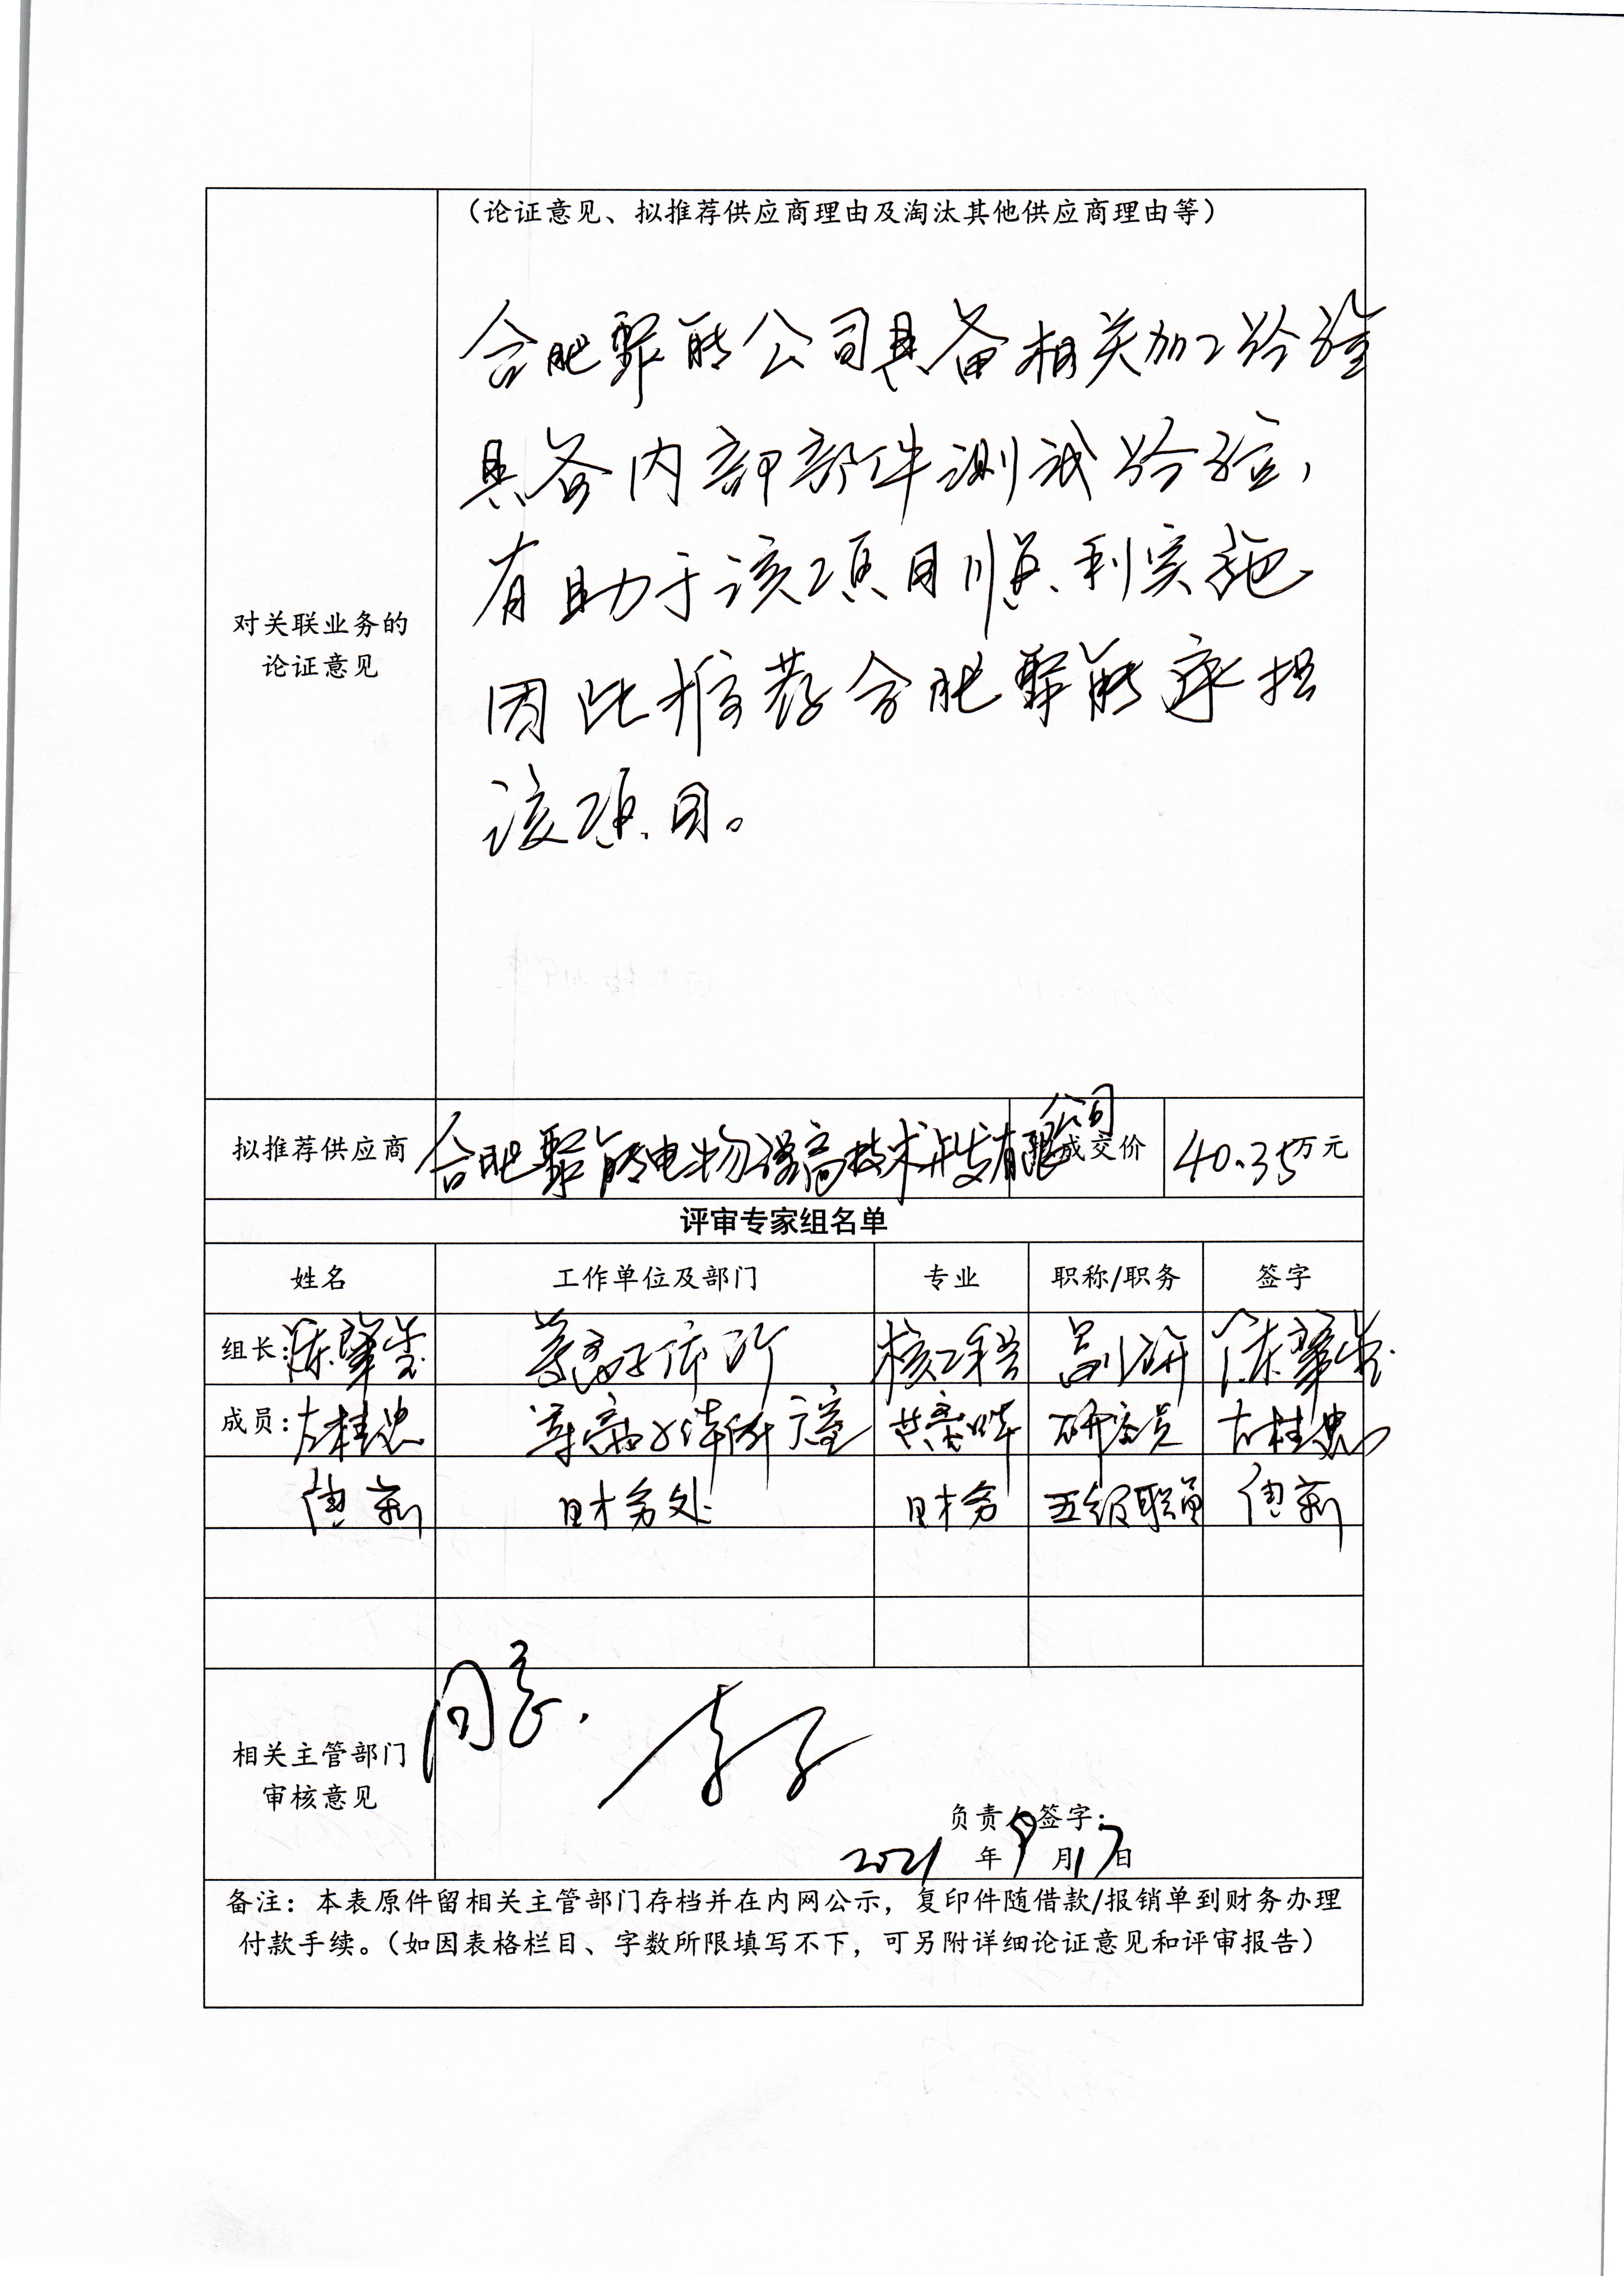 （论证意见、拟推荐供应商理由及淘汰其他供应商理由等）
合肥聚能公司具备相关加工经验
具备内部部件测试经验，
有助于该项目顺利实施
因此推荐合肥聚能承担
该项目。
对关联业务的
论证意见
拟推荐供应商 合肥聚能电物理高技术开发有限公司 成交价 40.35万元
评审专家组名单
姓名 工作单位及部门 专业 职称/职务 签字
组长：陈肇玺 等离子体所 核工程 副研 陈肇玺
成员：左桂忠 等离子体所 研究员 左桂忠
财务处 财务 五级职员
同意.
相关主管部门
审核意见
负责人签字：
2021年9月17日
备注：本表原件留相关主管部门存档并在内网公示，复印件随借款/报销单到财务办理
付款手续。（如因表格栏目、字数所限填写不下，可另附详细论证意见和评审报告）